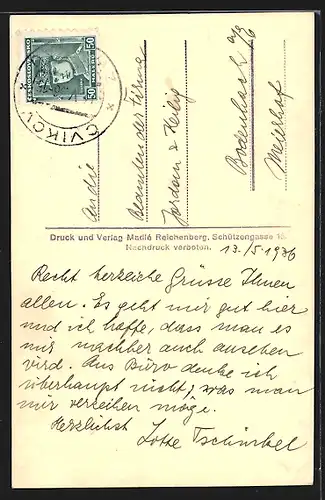 ČESKOSLOVENSKO
50 50
CVIKOV
An die
Beamten der Firma
Jordan & Heilig
Bodenbach a/E
Meierhof
Druck und Verlag Madlé Reichenberg, Schützengasse 15.
Nachdruck verboten.
13./5. 1936
Recht herzliche Grüsse Ihnen
allen. Es geht mir gut hier
und ich hoffe, dass man es
mir nachher auch ansehen
wird. Ans Büro denke ich
überhaupt nicht, was man
mir verzeihen möge.
Herzlichst
Lotte Tschinkel